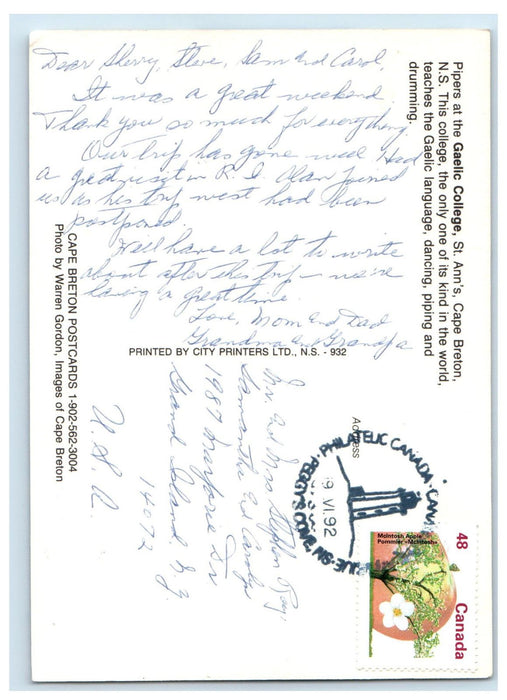 Pipers at the Gaelic College, St. Ann's, Cape Breton,
N.S. This college, the only one of its kind in the world,
teaches the Gaelic language, dancing, piping and
drumming.
Dear Sherry, Steve, Sam and Carol,
It was a great weekend.
Thank you so much for everything
Our trip has gone well. Had
a great visit in R.I. Alan joined
us as his trip west had been
postponed.
We'll have a lot to write
about after this trip - we're
having a great time.
Love, Mom and Dad
Grandma and Grandpa
PRINTED BY CITY PRINTERS LTD., N.S. - 932
CAPE BRETON POSTCARDS 1-902-562-3004
Photo by Warren Gordon, Images of Cape Breton
Address
Mr. and Mrs Stephen Ray,
Samantha and Carolyn
1987 Dr
Grand Island N.Y
14072
U.S.A
PHILATELIC CANADA
PEGGY'S COVE
9 VI 92
48
McIntosh Apple
Pommier «McIntosh»
Canada